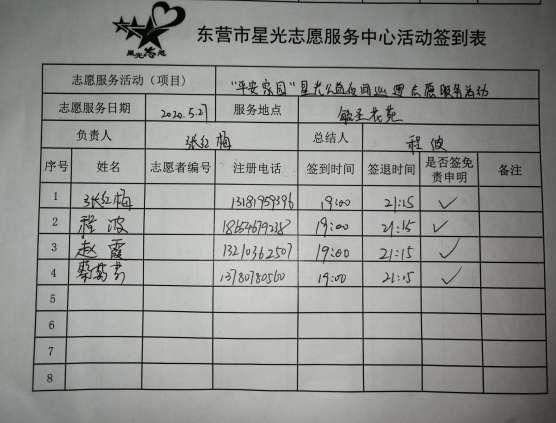 星光志愿
东营市星光志愿服务中心活动签到表
志愿服务活动（项目） "平安家园"星光公益夜间巡逻志愿服务活动
志愿服务日期 2020.5.27 服务地点 花苑
负责人 张红梅 总结人 程波
序号 姓名 志愿者编号 注册电话 签到时间 签退时间 是否签免责申明 备注
1 张红梅 13181959396 19:00 21:15 ✓
2 程波 18654679238 19:00 21:15 ✓
3 赵霞 13210362507 19:00 21:15 ✓
4 13780780560 19:00 21:15 ✓
5
6
7
8